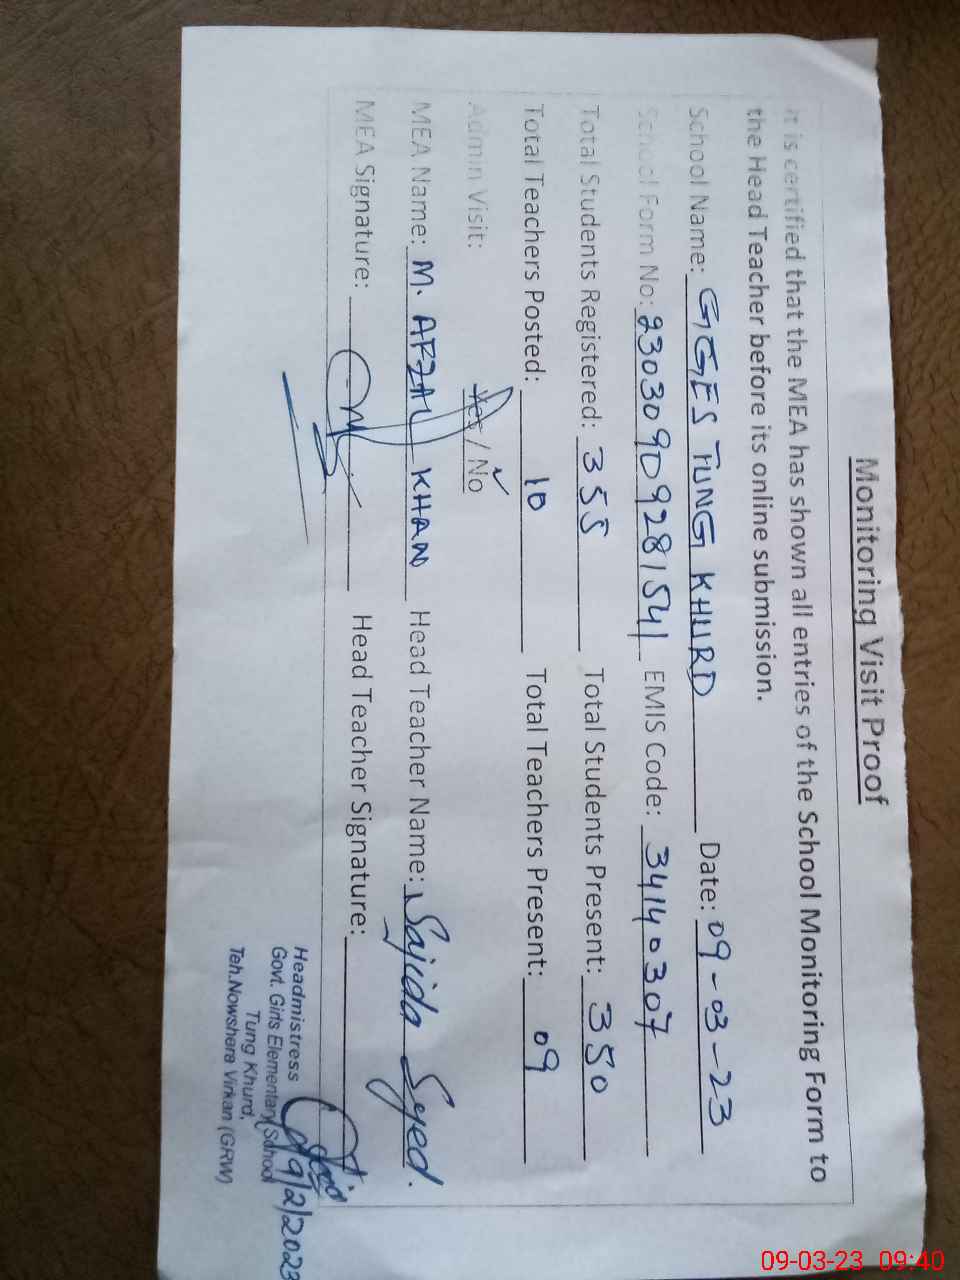 Monitoring Visit Proof
It is certified that the MEA has shown all entries of the School Monitoring Form to
the Head Teacher before its online submission.
School Name: GGES TUNG KHURD Date: 09-03-23
School Form No: 23030909281541 EMIS Code: 34140307
Total Students Registered: 355 Total Students Present: 350
Total Teachers Posted: 10 Total Teachers Present: 09
Admin Visit: Yes / No
MEA Name: M. AFZAL KHAN Head Teacher Name: Sajida Syed.
MEA Signature: Head Teacher Signature:
Headmistress
Govt. Girls Elementary School
Tung Khurd,
Teh.Nowshera Virkan (GRW)
9/2/2023
09-03-23 09:40